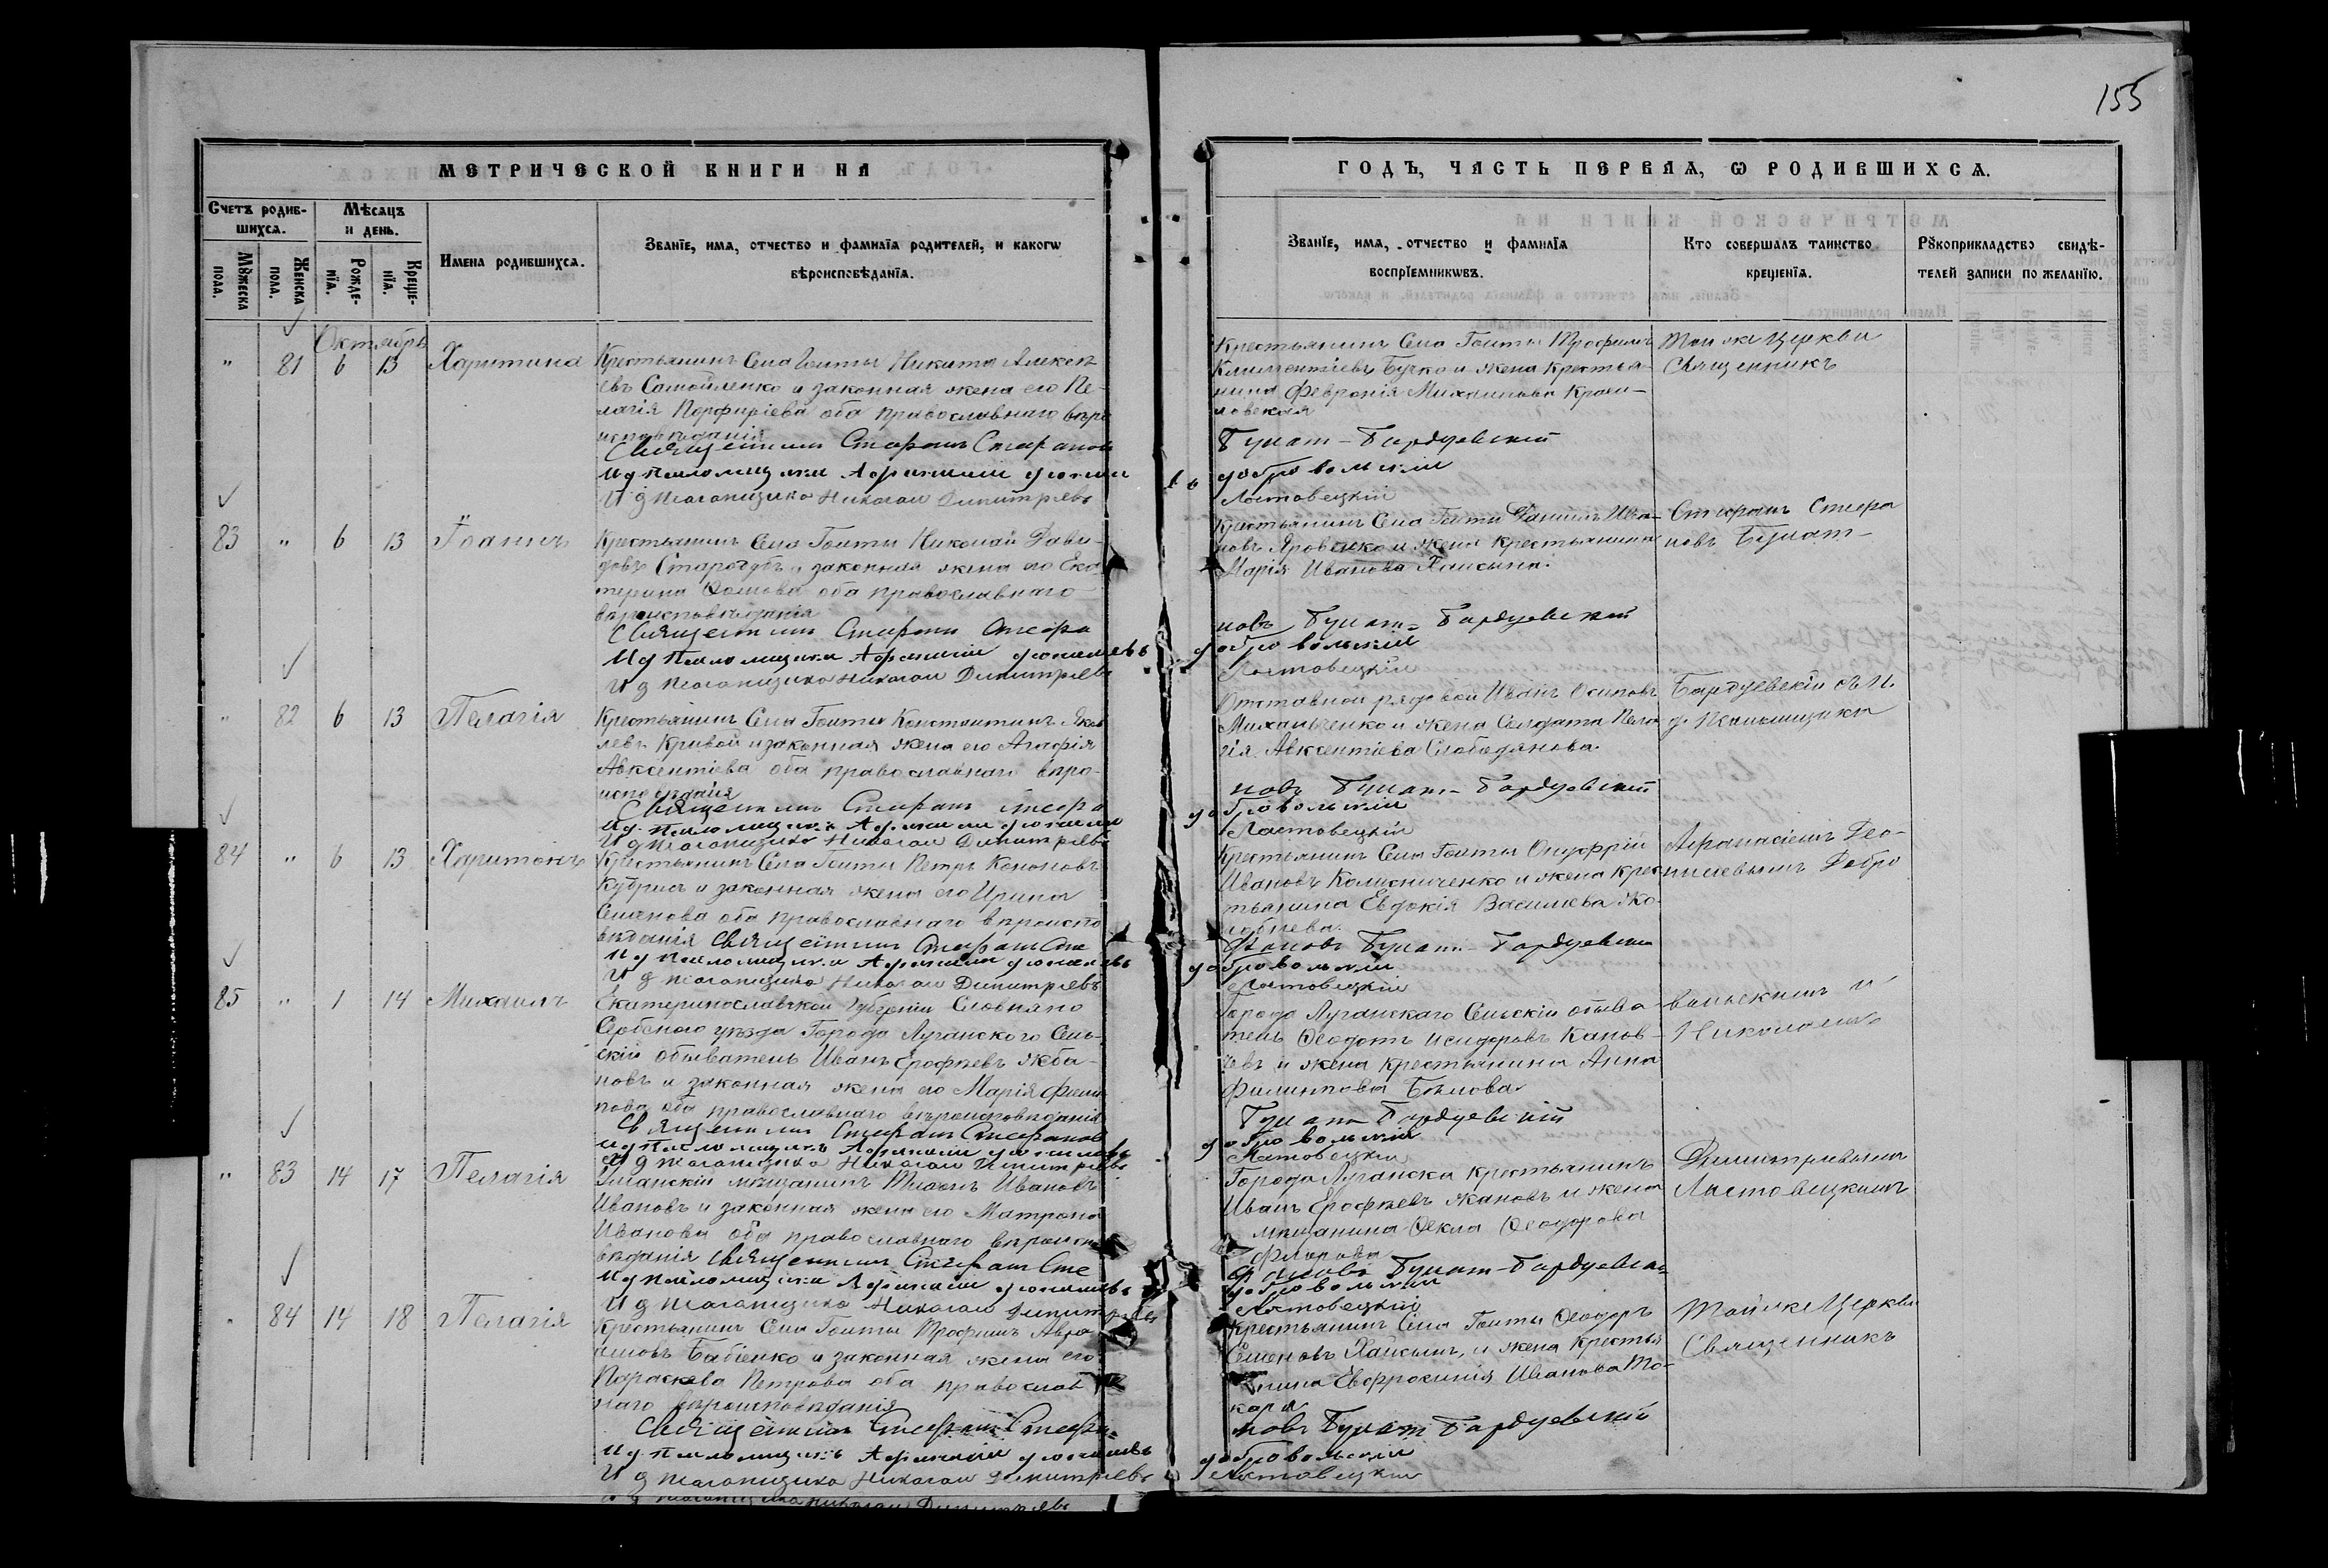 155
МЕТРИЧЕСКОЙ КНИГИ НА
ГОДЪ, ЧАСТЬ ПЕРВАЯ, Ѡ РОДИВШИХСѦ.
Счетъ родив-
шихсѧ.
Мѣсѧцъ
и день.
Мꙋжеска
пола.
Женска
пола.
Рожде-
нїѧ.
Креще-
нїѧ.
Имена родившихсѧ.
Званїе, имѧ, отчество и фамилїѧ родителей, и какогѡ
вѣроисповѣданїѧ.
Званїе, имѧ, отчество и фамилїѧ
воспрїемникѡвъ.
Кто совершалъ таинство
крещенїѧ.
Рꙋкоприкладство свидѣ-
телей записи по желанїю.
Октябрь
" 81 6 13 Харитина
Крестьянинъ Села Голты Никита Алексѣ
евъ Самойленко и законная жена его Пе-
лагія Порфиріева оба православнаго вѣро
исповѣданія
Священникъ Стефанъ Стефанов
И д псаломщика Афанасій
И д псаломщика Николай Димитріевъ
Крестьянинъ Села Голты Трофимъ
Климентіевъ Бучко и жена крестья-
нина Февронія Михаилова
Той же Церкви
Священникъ
Булат-Бардуевскій
добровольскій
Ластовецкій
83 " 6 13 Іоаннъ
Крестьянинъ Села Голты Николай Дави-
довъ и законная жена его Ека
терина Ѳомова оба православнаго
вѣроисповѣданія
Священникъ Стефанъ Стефа
И д Псаломщика Афанасій
И д псаломщика Николай Димитріевъ
Крестьянинъ Села Голты Даніилъ Ива-
новъ Яровенко и жена крестьянина
Марія Иванова Хаисына.
Стефанъ Стефа
новъ Булат-
новъ Булат-Бардуевскій
добровольскій
Ластовецкій
" 82 6 13 Пелагія
Крестьянинъ Села Голты Константинъ Яков
левъ Кривой и законная жена его Агафія
Авксентіева оба православнаго вѣро-
исповѣданія
Священникъ Стефанъ Стефа
И д. псаломщика Афанасій
И д псаломщика Николай Димитріевъ
Отставной рядовой Иванъ Осиповъ
Михальченко и жена Солдата Пела
гія Авксентіева Слободянова.
Бардуевскій съ И.
д. Псаломщика
новъ Булат-Бардуевскій
добровольскій
Ластовецкій
84 " 6 13 Харитонъ
Крестьянинъ Села Голты Петръ Кононовъ
и законная жена его Ирина
Семенова оба православнаго вѣроиспо
вѣданія Священникъ Стефанъ Сте
И д псаломщика Афанасій
И д псаломщика Николай Димитріевъ
Крестьянинъ Села Голты Онуфрій
Ивановъ Калиниченко и жена крес
тьянина Евдокія Василіева
Афанасіемъ Део-
нисіевымъ Добро
фановъ Булат-Бардуевскій
добровольскій
Ластовецкій
85 " 1 14 Михаилъ
Екатеринославской Губерніи Словяно
Сербскаго уѣзда Города Луганского Сель-
скій обыватель Иванъ Ерофѣевъ
и законная жена его Марія
оба православнаго вѣроисповѣданія
Священникъ Стефанъ Стефанов
И д псаломщика Афанасій
И д псаломщика Николай Димитріевъ
Города Луганскаго Сельскій обыва-
тель Ѳеодотъ Исидоровъ
и жена крестьянина Анна
Филиппова Бѣлова.
вольскимъ и
Николаемъ
Булат-Бардуевскій
добровольскій
Ластовецкій
" 83 14 17 Пелагія
мѣщанинъ Ивановъ
Ивановъ и законная жена его Матрона
Иванова оба православнаго вѣроиспо
вѣданія Священникъ Стефанъ Сте
И д псаломщика Афанасій
И д псаломщика Николай Димитріевъ
Города Луганска крестьянинъ
Иванъ Ерофѣевъ и жена
мѣщанина Ѳекла Ѳеодорова
Димитріевымъ
Ластовецкимъ
фановъ Булат-Бардуевскій
добровольскій
Ластовецкій
" 84 14 18 Пелагія
Крестьянинъ Села Голты Трофимъ Авра
амовъ Бабіенко и законная жена его
Параскева Петрова оба православ
наго вѣроисповѣданія
Священникъ Стефанъ Стефа-
И д псаломщика Афанасій
И д псаломщика Николай Димитріевъ
Крестьянинъ Села Голты Ѳеодоръ
Семеновъ Хаисынъ, и жена Крестья
нина Евфросинія Иванова То-
каря
Той же Церкви
Священникъ
новъ Булат Бардуевскій
добровольскій
Ластовецкій